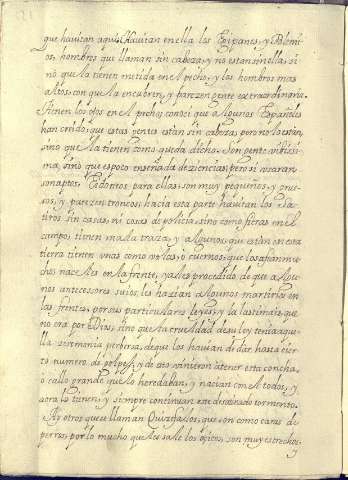 que havitan aqui. Havitan en ella los Egipanes, y Blemi-
os, hombres que llaman sin cabeza, y no estan sin ella, si
no que la tienen metida en el pecho, y los hombros mas
altos, con que la encubren, y parezen gente extraordinaria.
Tienen los ojos en el pecho, conoci que algunos Españoles
han creido, que estas gentes estan sin cabeza, pero no lo estan,
sino que la tienen como queda dicho. Son gente
ma, sino que es poco enseñada de ziencias, pero si usaran
son aptos. para ellas, son muy pequeños, y grue-
sos, y parezen troncos, hacia esta parte havitan los Sa-
tiros sin casas, ni cosas de policia, sino como fieras en el
campo, tienen mala traza, y algunos que estan en esta
tierra tienen unas como o cuernos, que los afean mu-
cho, nacelles en la frente, y a les procedido de que a algu-
nos antecessores suios, les hazian algunos martirios en
las frentes, por sus particulares leyes, y la lastima es, que
no era por Dios, sino que la crueldad de su ley tenia aque-
lla zeremonia perversa, de que les havian de dar hasta cier-
to numero de golpes, y de esto vinieron a tener esta concha,
o callo grande que lo heredaban, y nacian con el todos, y
aora lo tienen, y siempre continuan este desatinado tormento.
Ay otros que llaman que son como caras de
perros, por lo mucho que les sale los ojicos, son muy estrechos,
y